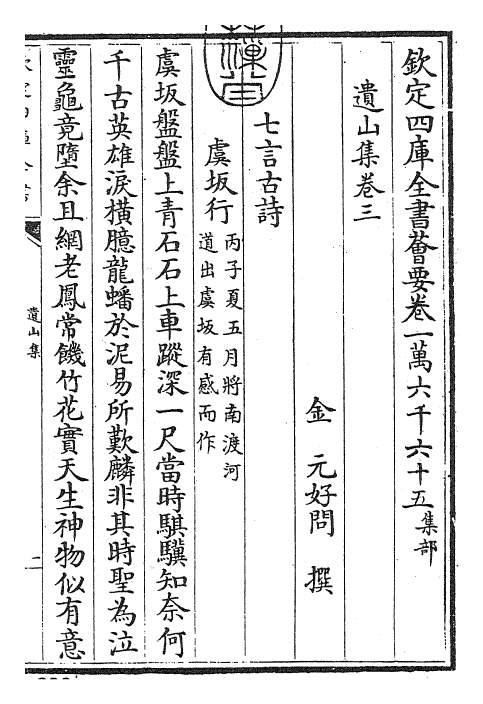 欽定四庫全書薈要卷一萬六千六十五集部
遺山集卷三
金 元好問 撰
七言古詩
虞坂行丙子夏五月將南渡河
道出虞坂有感而作
虞坂盤盤上青石石上車蹤深一尺當時騏驥知奈何
千古英雄淚橫臆龍蟠於泥易所歎麟非其時聖為泣
靈龜竟墮余且網老鳳常饑竹花實天生神物似有意
遺山集